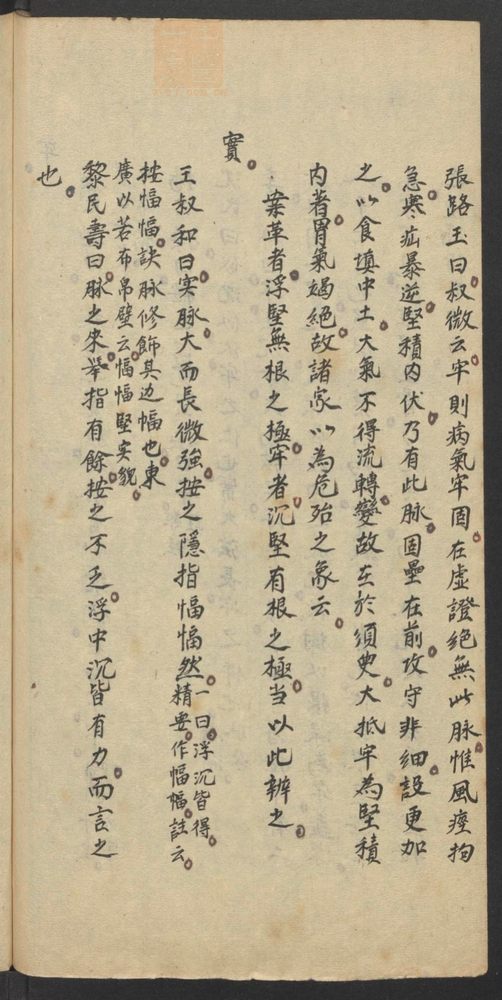 張路玉曰叔微云牢則病氣牢固在虛證絕無此脉惟風痙拘
急寒疝暴逆堅積內伏乃有此脉固壘在前攻守非細設更加
之以食填中土大氣不得流轉變故在於須臾大抵牢為堅積
內著胃氣竭絕故諸家以為危殆之象云
案革者浮堅無根之極牢者沉堅有根之極當以此辨之
實
王叔和曰实脉大而長微強按之隱指愊愊然一曰浮沉皆得
精要作幅幅註云
按幅幅訣脉修飾其边幅也東
廣以若布帛壁云愊愊堅实貌
黎民壽曰脉之來舉指有餘按之不乏浮中沉皆有力而言之
也